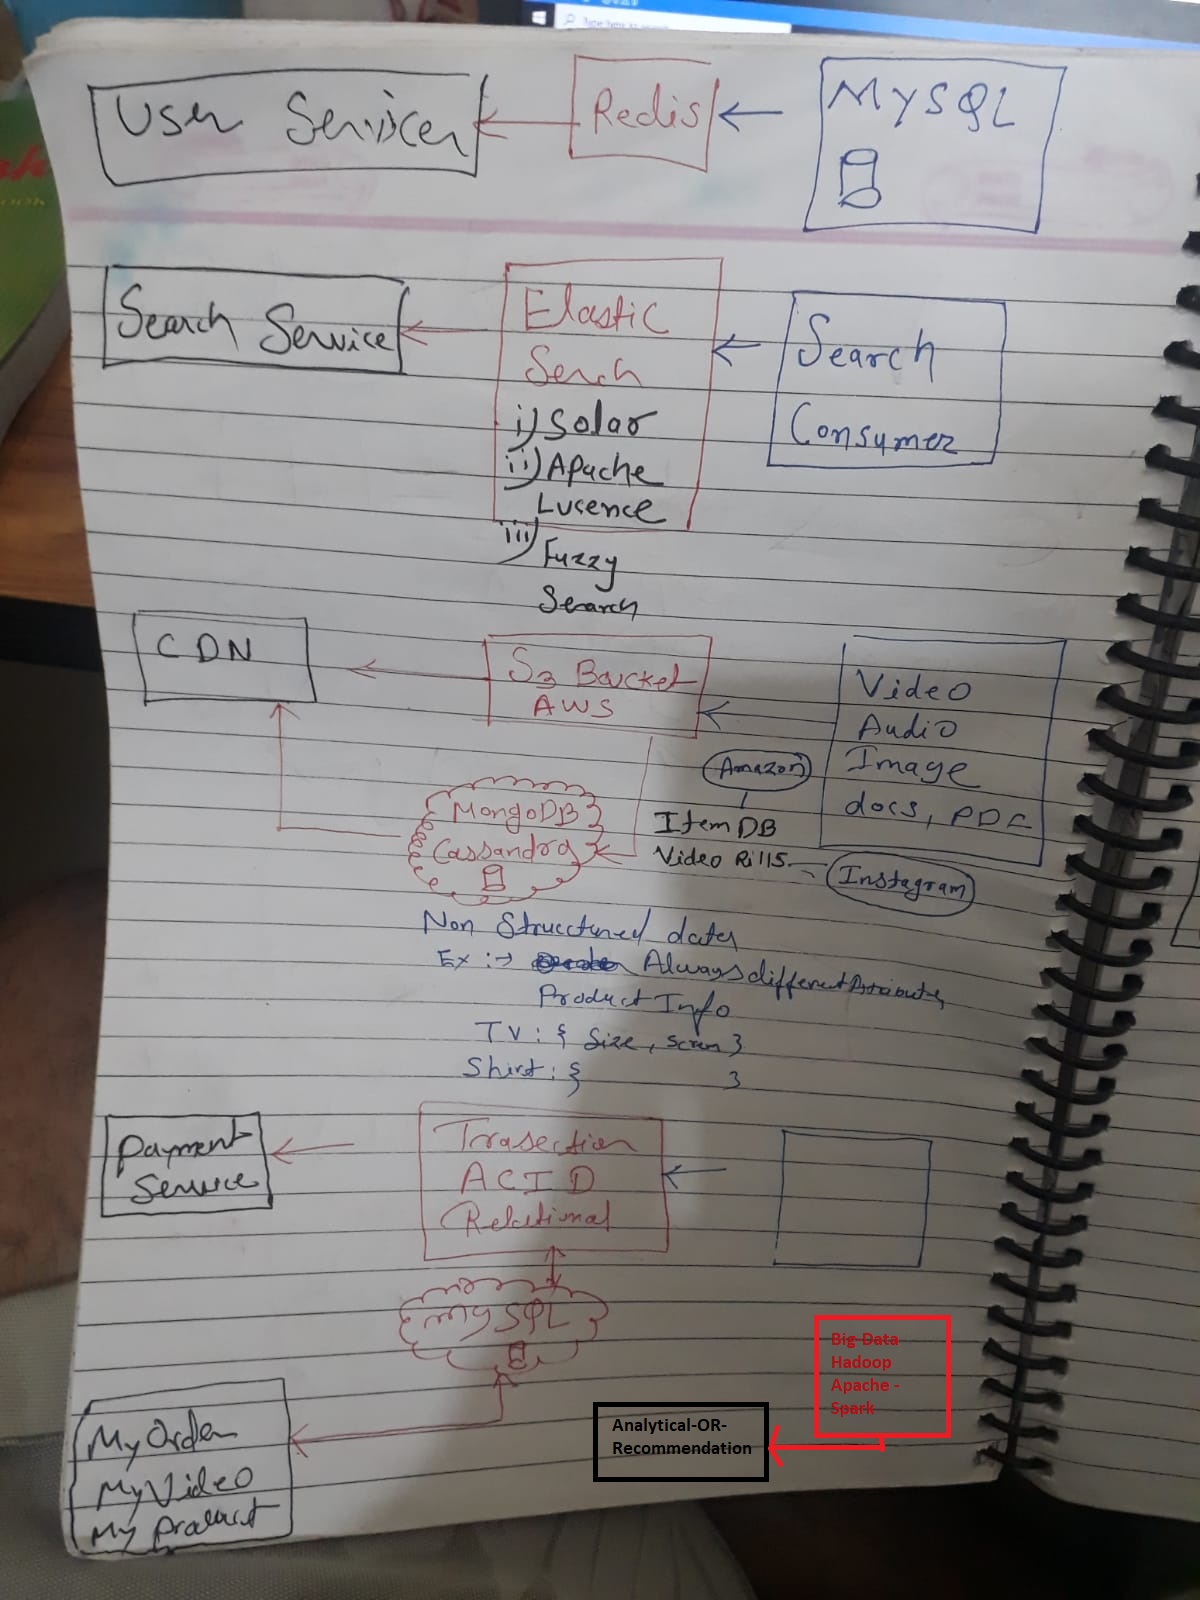 User Servicer
Redis
MYSQL
Search Service
Elastic
Serch
i) Solar
ii) Apache
Lucence
iii) Fuzzy
Search
Search
Consumer
CDN
S3 Boucket
AWS
Video
Audio
Image
docs, PDF
Amazon
Item DB
Video Rills
Instagram
MongoDB
Cassandra
Non Structured data
Ex :→ Always different Attributes
Product Info
TV : { Size, Screen }
Shirt : { }
Payment
Service
Trasection
ACID
Relational
MySQL
My Order
My Video
My product
Big Data
Hadoop
Apache -
Spark
Analytical-OR-
Recommendation